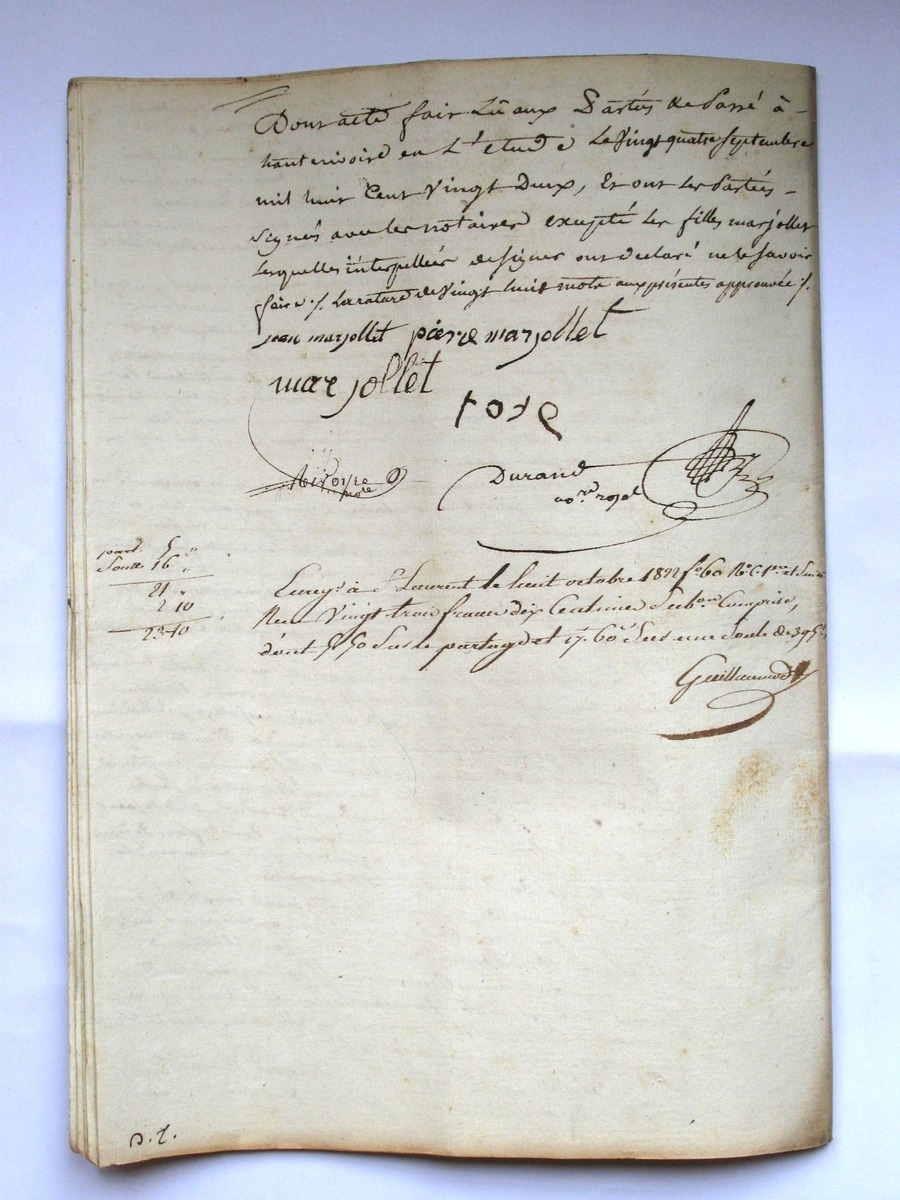 Dont acte fait Lû aux Parties & Passé à -
hauterivoire en L'etude Le Vingt quatre Septembre
mil huit Cent Vingt Deux, Et ont Les Parties -
Signés avec les notaires excepté Les filles marjollet
Lesquelles interpellées de signer ont declaré ne le Savoir
faire ./. La rature de Vingt huit mots aux présentes approuvée ./.
jean marjollet pierre marjollet
marjollet
rose
Durand
no.re royal
part. 5 "
Soulte 16 "
21 "
2 10
23-10
Enreg.é à St Laurent le huit octobre 1822 fo 60
Reçu Vingt trois francs dix Centimes Comprise,
dont 5f 50 Sur le partage et 17.60c Sur une Soulte de
Guillaumod